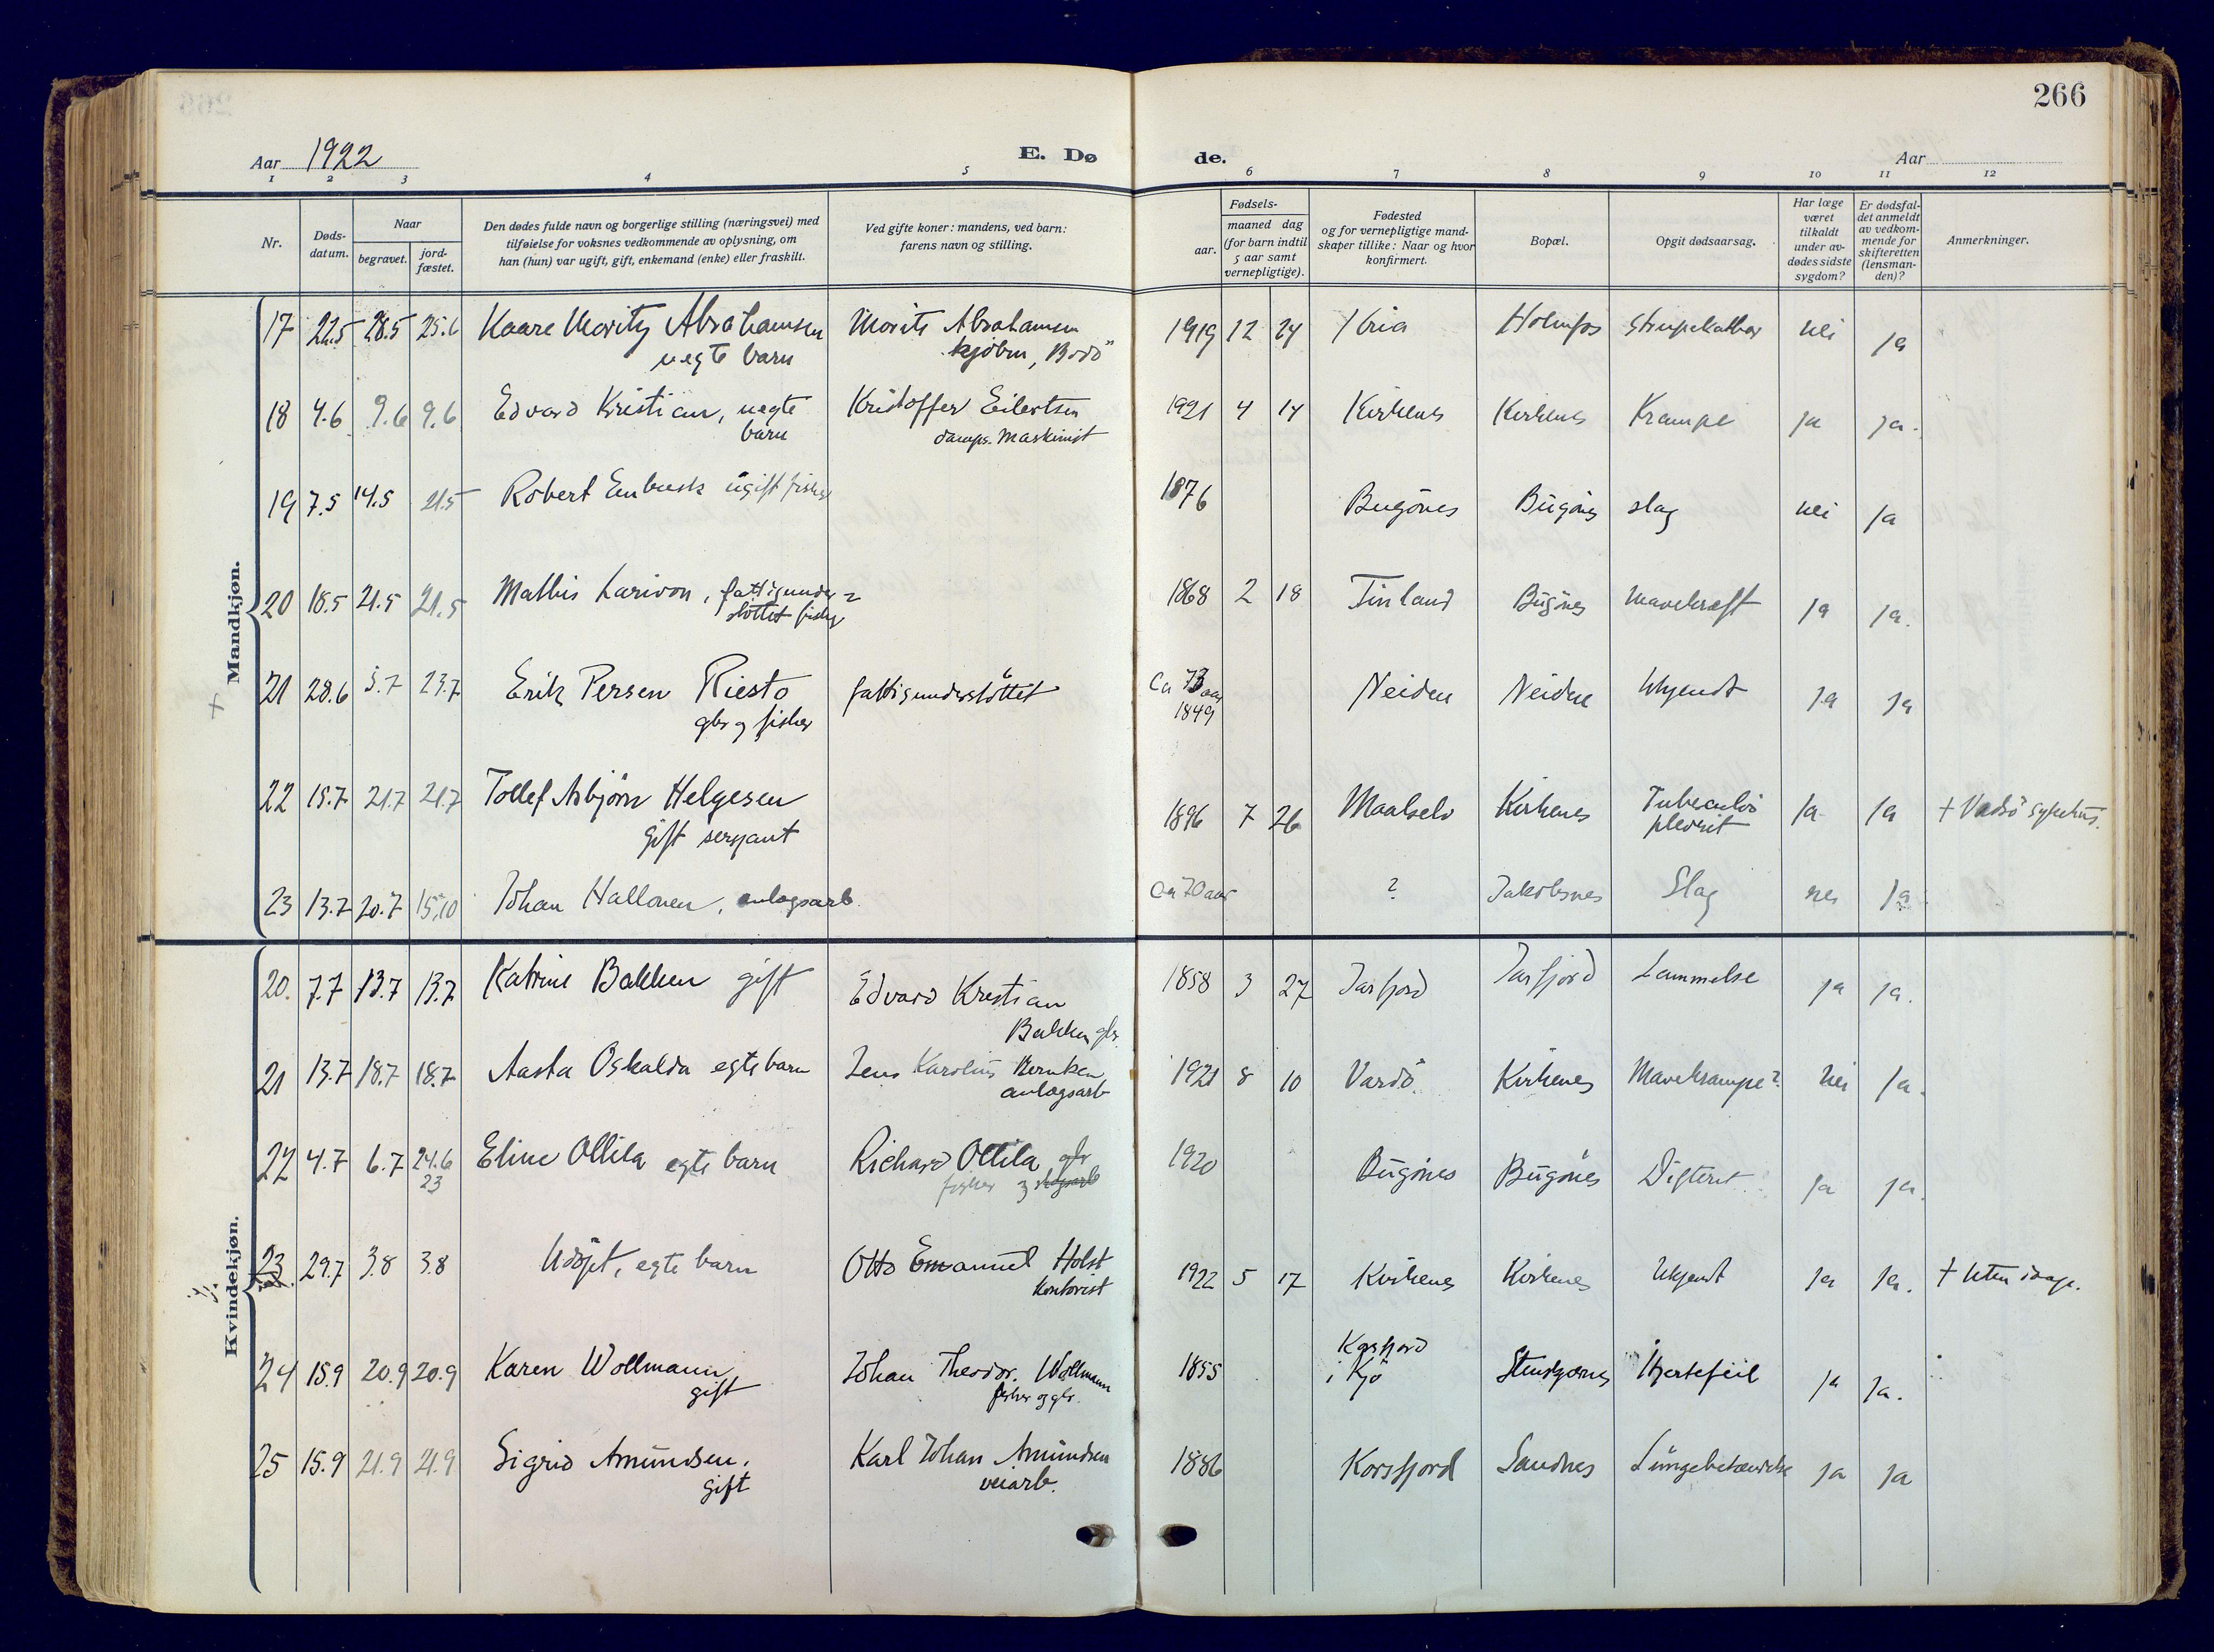 266
Aar 1922
E. Dø
de.
Aar
1 2 3 4 5 6 7 8 9 10 11 12
Nr.
Døds-
datum.
Naar
begravet.
jord-
fæstet.
Den dødes fulde navn og borgerlige stilling (næringsvei) med
tilføielse for voksnes vedkommende av oplysning, om
han (hun) var ugift, gift, enkemand (enke) eller fraskilt.
Ved gifte koner: mandens, ved barn:
farens navn og stilling.
Fødsels-
aar.
maaned dag
(for barn indtil
5 aar samt
vernepligtige).
Fødested
og for vernepligtige mand-
skaper tillike: Naar og hvor
konfirmert.
Bopæl.
Opgit dødsaarsag.
Har læge
været
tilkaldt
under av-
dødes sidste
sygdom?
Er dødsfal-
det anmeldt
av vedkom-
mende for
skifteretten
(lensman-
den)?
Anmerkninger.
Mandkjøn.
17 22.5 28.5 25.6 Kaare Moritz Abrahamsen Morits Abrahamsen 1919 12 24 Holmfos Strupekathar nei ja
uegte barn kjøbm, Bodö
18 4.6 9.6 9.6 Edvard Kristian, uegte Kristoffer Eilertsen 1921 4 14 Kirkenes Kirkenes Krampe ja ja.
barn damps. maskinist
19 7.5 14.5 21.5 Robert Enbusk ugift fisker 1876 Bugönes Bugönes slag nei ja
20 18.5 21.5 21.5 Mathis Larivon, fattigunder- 1868 2 18 Finland Bugönes Mavekræft ja ja.
støttet fisker
21 28.6 3.7 23.7 Erik Persen Riesto fattigunderstöttet Ca 73 aar Neiden Neiden Ukjendt ja ja
gbr og fisker 1849
22 15.7 21.7 21.7 Tollef Asbjörn Helgesen 1896 7 26 Maalselv Kirkenes Tuberculös ja ja + Vadsö sykehus.
gift sersjant pleurit
23 13.7 20.7 15.10 Johan Hallonen, anlægsarb. ca 70 aar ? Jakobsnes Slag nei ja
Kvindekjøn.
20. 7.7 13.7 13.7 Katrine Bakken gift Edvard Kristian 1858 3 27 Jarfjord Jarfjord Lammelse ja ja.
Bakken gbr.
21 13.7 18.7 18.7 Aasta Oskalda egte barn Jens Karolius 1921 8 10 Vardö. Kirkenes Mavekrampe? nei ja.
anlægsarb
22 4.7 6.7 24.6 Eline Ollila egte barn Richard Ollila gbr 1920 Bugönes Bugönes Difterit ja ja.
23 fisker
23 29.7 3.8 3.8 Udöpt, egte barn Otto Emanuel Holst 1922 5 17 Kirkenes Kirkenes Ukjendt ja ja. + Uten daap.
kontorist
24 15.9 20.9 20.9 Karen Wollmann Johan Theodor. Wollmann 1855 Korsfjord Stenskjærnes Hjertefeil ja ja.
gift fisker og gbr. i Kjö
25 15.9 21.9 21.9 Sigrid Amundsen. Karl Johan Amundsen 1886 Korsfjord Sandnes Lungebetændelse ja ja
gift veiarb.